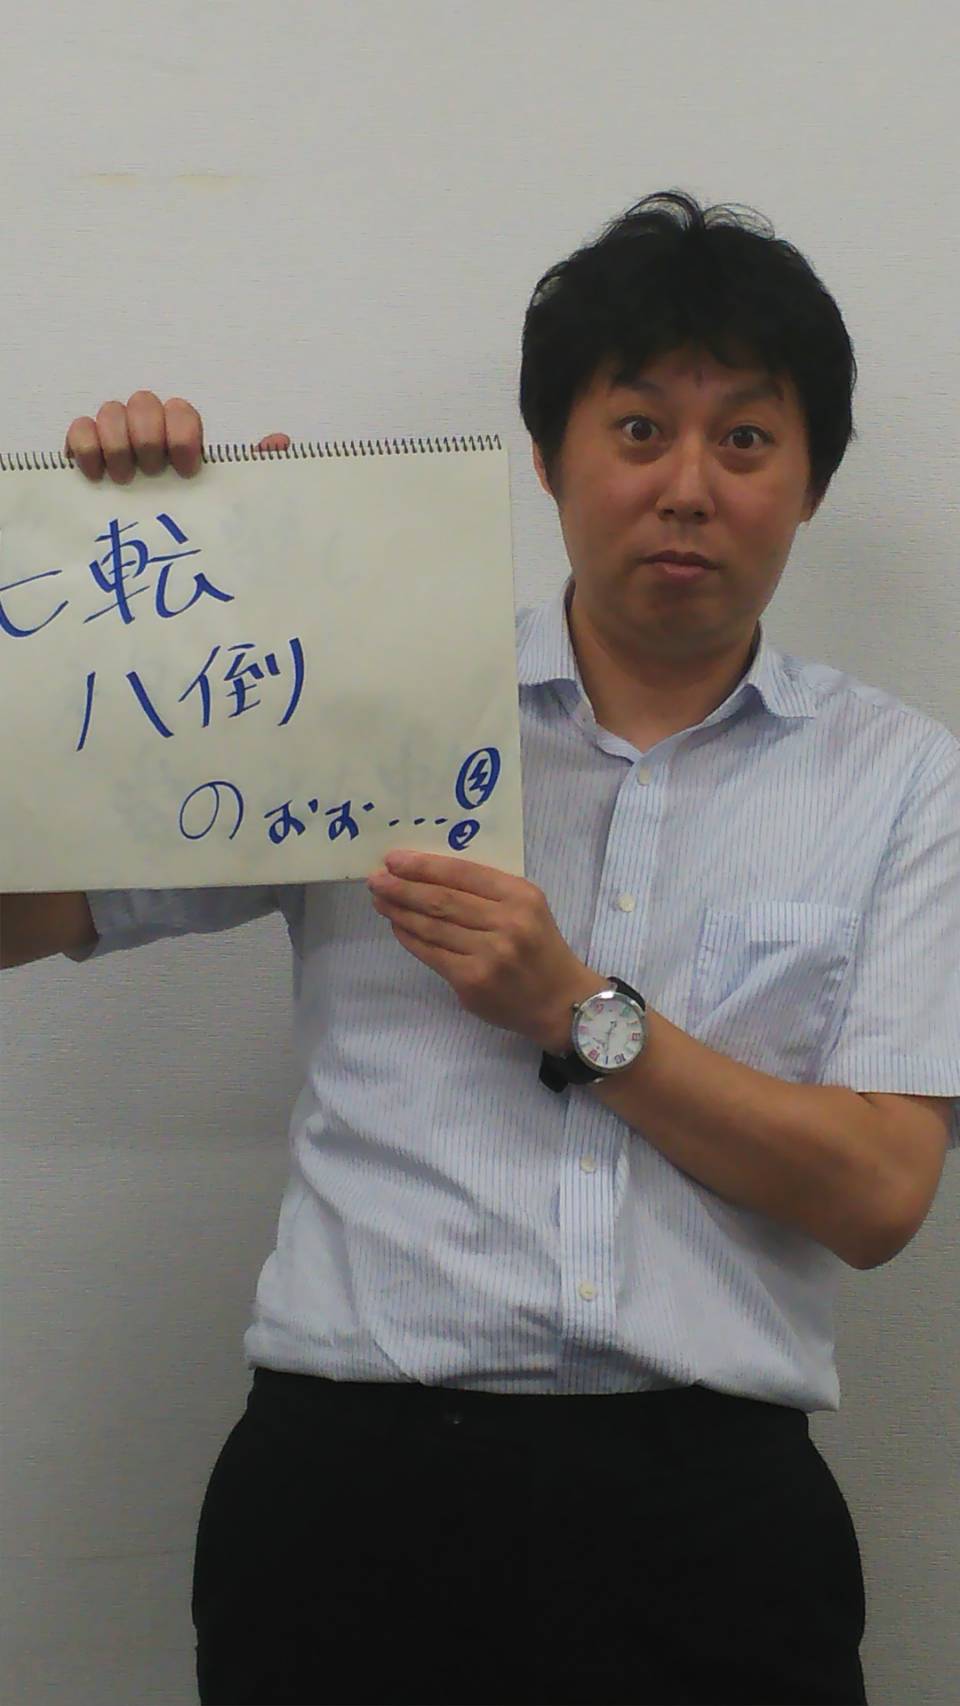 七転
八倒
のおお...!